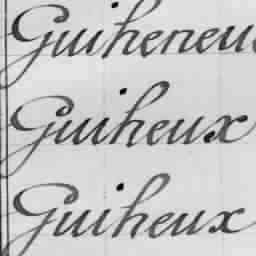 Guiheneu
Guiheux
Guiheux